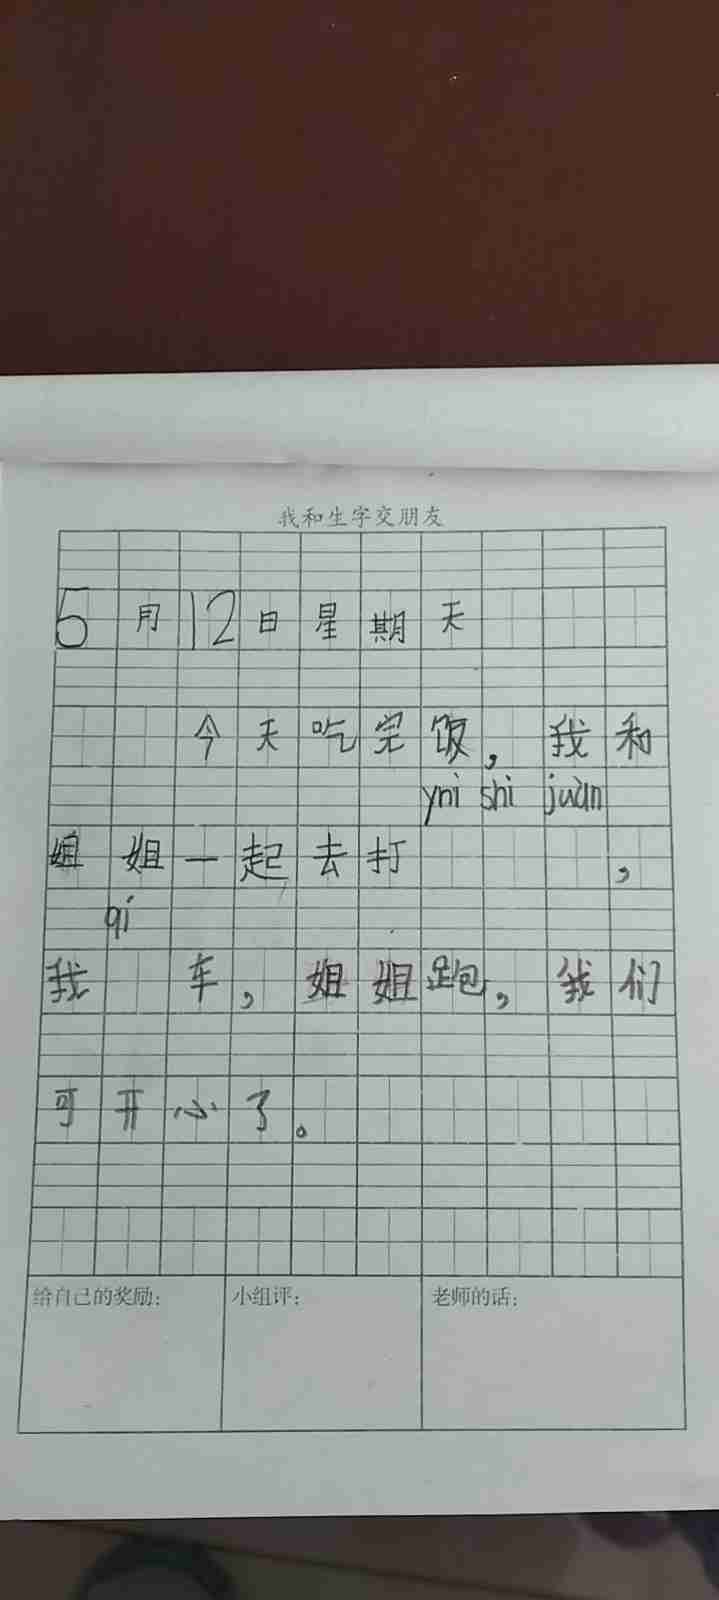 我和生字交朋友
5月12日星期天
今天吃完饭，我和
yni shi juàn
姐姐一起去打，
qí
我车，姐姐跑，我们
可开心了。
给自己的奖励：
小组评：
老师的话：